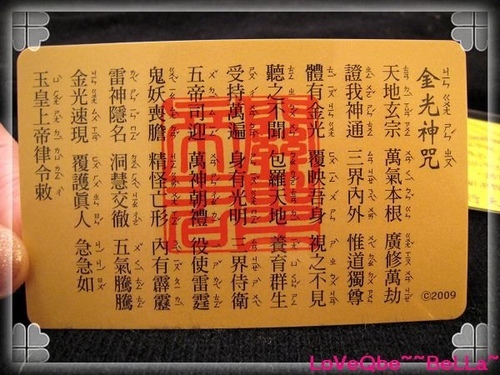 金光神咒
天地玄宗 萬氣本根 廣修萬劫
證我神通 三界內外 惟道獨尊
體有金光 覆映吾身 視之不見
聽之不聞 包羅天地 養育群生
受持萬遍 身有光明 三界侍衛
五帝司迎 萬神朝禮 役使雷霆
鬼妖喪膽 精怪亡形 內有霹靂
雷神隱名 洞慧交徹 五氣騰騰
金光速現 覆護眞人 急急如
玉皇上帝律令敕
©2009
LoVeQbe~~BeLLa~